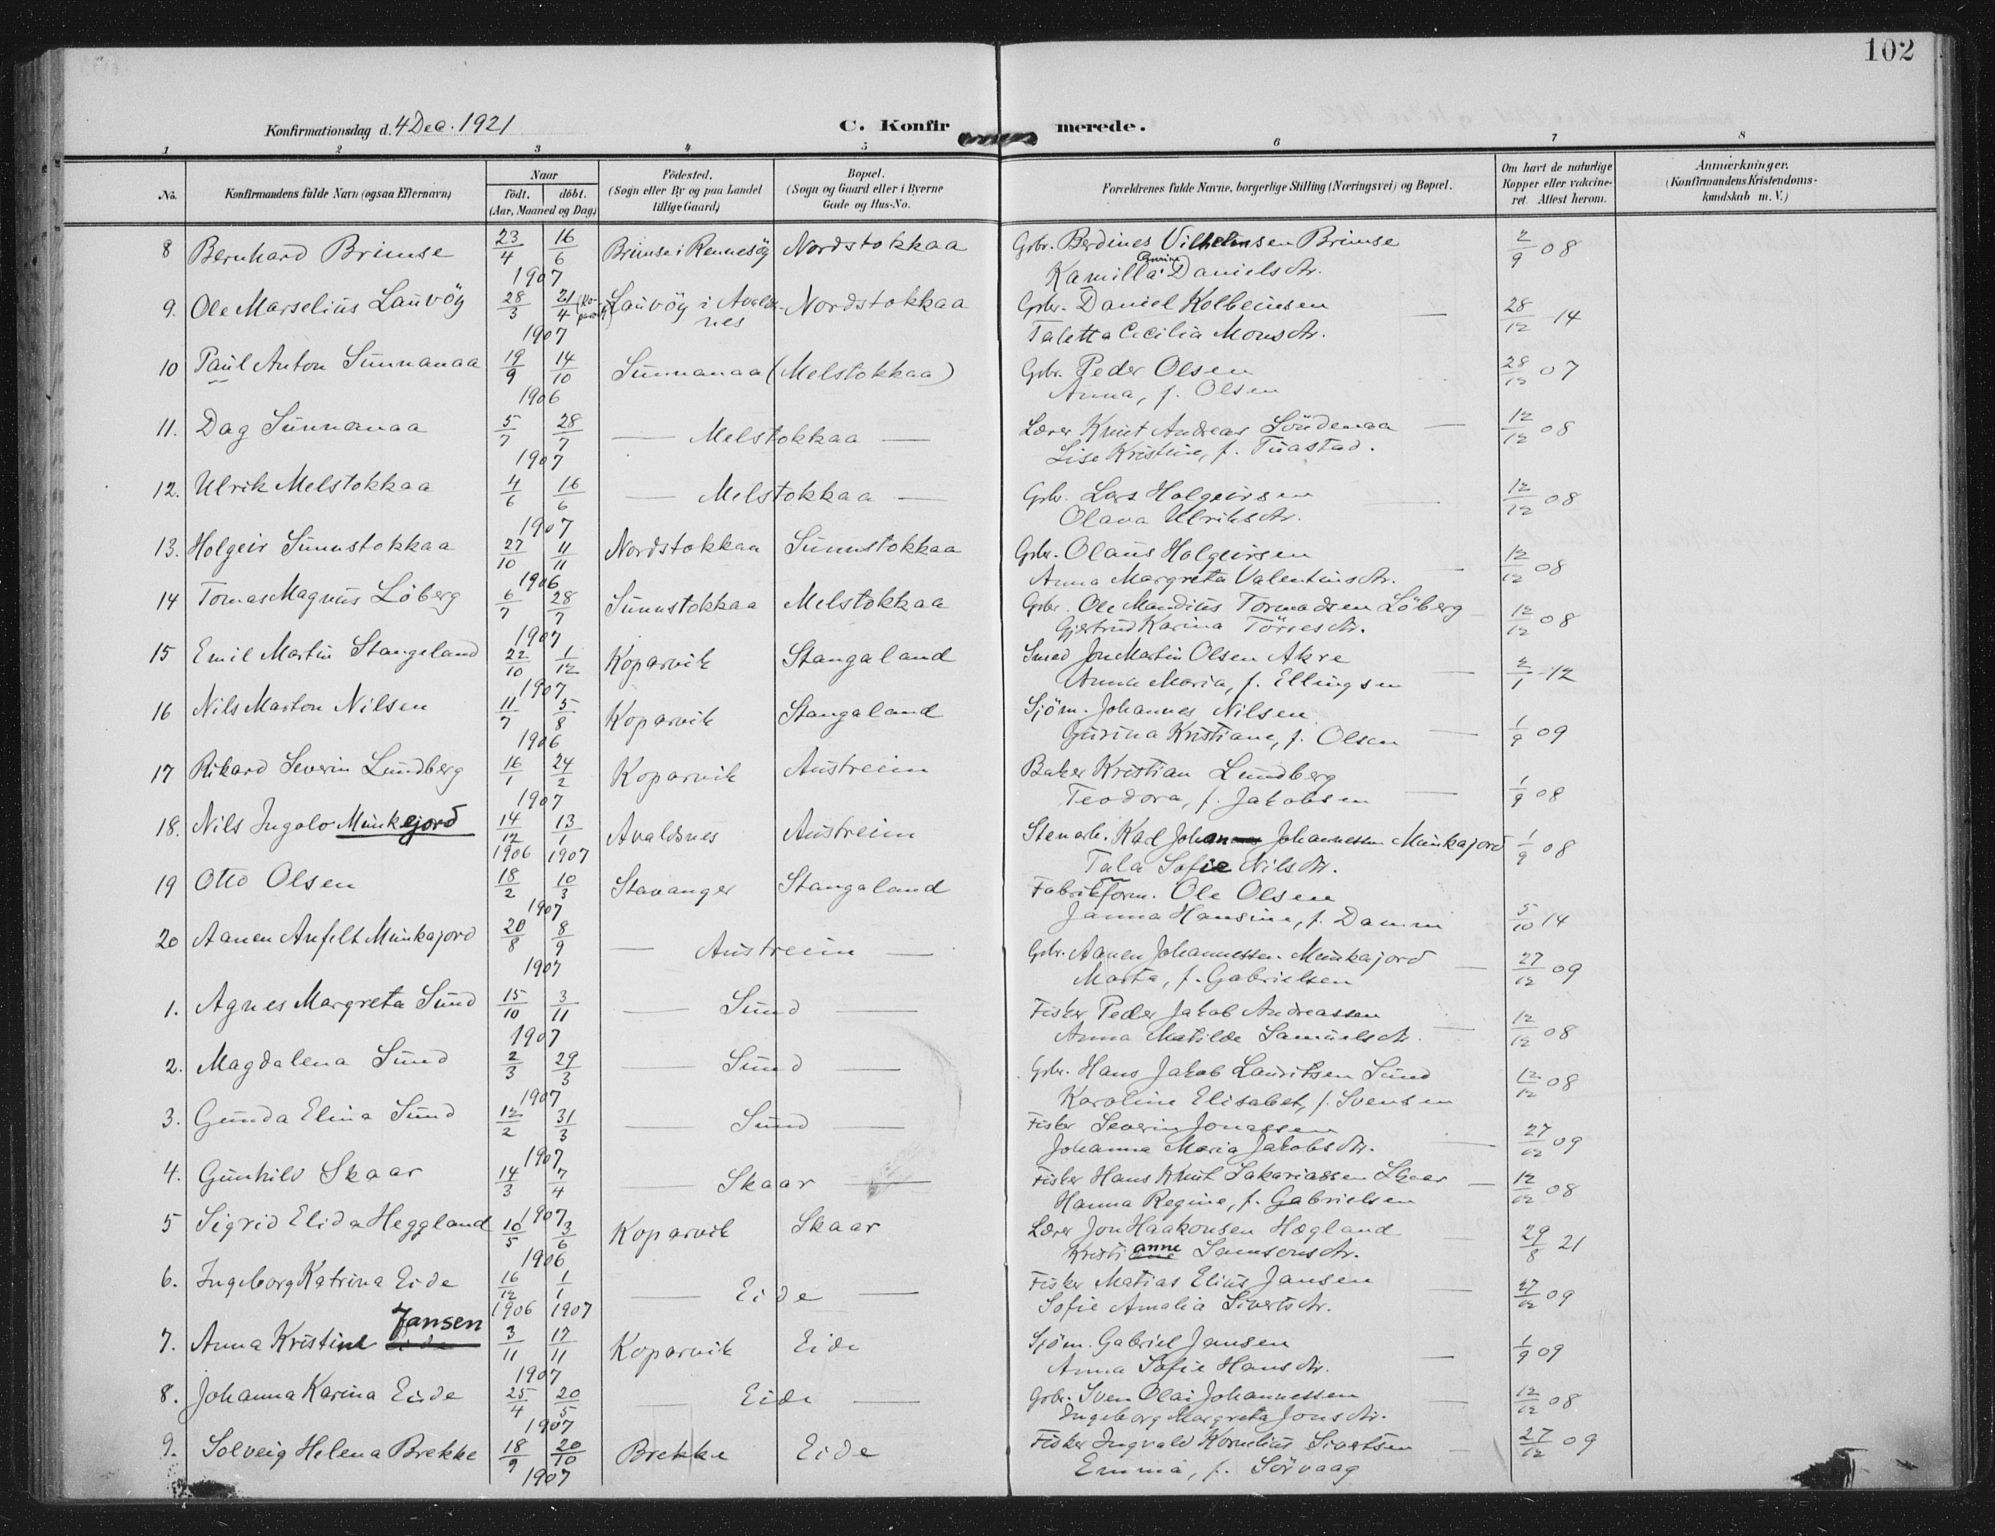 102
Konfirmationsdag d. 4 Dec. 1921
C. Konfirmerede.
1 2 3 4 5 6 7 8
No.
Konfirmandens fulde Navn (ogsaa Efternavn)
Naar
født. døbt.
(Aar, Maaned og Dag)
Fødested.
(Sogn eller By og paa Landet
tillige Gaard)
Bopæl.
(Sogn og Gaard eller i Byerne
Gade og Hus-No.
Forældrenes fulde Navne, borgerlige Stilling (Næringsvei) og Bopæl.
Om havt de naturlige
Kopper eller vakcine-
ret. Attest herom.
Anmærkninger.
(Konfirmandens Kristendoms-
kundskab m. V.)
8 Bernhard Brimse 23/4 16/6 Brimse i Rennesöy Nordstokkaa Gbr. Berdines Vilhelmsen Brimse 2/9 08
1907 Kamilla Danielsdtr.
9. Ole Marselius Lauvöy 28/3 21/4 Lauvöy i Avaldsnes Nordstokkaa Gbr. Daniel Kolbeinsen — 28/12 14
1907 Taletta Cecilia Monsdtr.
10 Paul Anton Sunnanaa 19/9 14/10 Sunnanaa (Melstokkaa) Gbr. Peder Olsen 28/12 07
1906 Anna, f. Olsen
11. Dag Sunnanaa 5/7 28/7 — Melstokkaa — Lærer Knut Andreas Söndenaa — 12/12 08
1907 Lise Kristine, f. Tuastad.
12. Ulrik Melstokkaa 4/6 16/6 — Melstokkaa — Gbr. Lars Holgeirsen — 12/12 08
1907 Olava Ulriksdtr.
13. Holgeir Sunnstokkaa 27/10 11/11 Nordstokkaa Sunnstokkaa Gbr. Olaus Holgeirsen — 12/12 08
1906 Anna Margreta Valentinsdtr.
14 Tomas Magnus Löberg 6/7 28/7 Sunnstokkaa Melstokkaa Gbr. Ole Mandius Tormodsen Löberg — 12/12 08
1907 Gjertrud Karina Törresdtr.
15 Emil Martin Stangeland 22/10 1/12 Koparvik Stangaland Smed Jon Martin Olsen Akre — 2/1 12
1907 Anna Maria, f. Ellingsen
16 Nils Marton Nilsen 11/7 5/8 Koparvik Stangaland Sjöm. Johannes Nilsen — 1/9 09
1906 Gurina Kristiane, f. Olsen
17 Rikard Severin Lundberg 16/1 24/2 Koparvik Austreim Baker Kristian Lundberg — 1/9 08
1907 Teodora, f. Jakobsen
18. Nils Ingolv Munkejord 14/12 13/1 Avaldsnes Austreim Stenarb. Karl Johan Johannessen Munkajord 1/9 08
1906 1907 Tala Sofie Nilsdtr.
19 Otto Olsen 18/2 10/3 Stavanger Stangaland Fabrikform. Ole Olsen 5/10 14
1907 Janna Hansine, f. Damm
20 Aanen Anfelt Munkajord 20/8 8/9 — Austreim — Gbr. Aanen Johannessen Munkajord — 27/12 09
1907 Marta, f. Gabrielsen
1. Agnes Margreta Sund 15/10 3/11 — Sund — Fisker Peder Jakob Andreassen — 12/12 08
1907 Anna Matilde Samuelsdtr.
2. Magdalena Sund 2/3 29/3 — Sund — Gbr. Hans Jakob Lauritsen Sund 12/12 08
1907 Karoline Elisabet, f. Svensen
3. Gunda Elina Sund 12/2 31/3 — Sund — Fisker Severin Jonassen — 27/12 09
1907 Johanna Maria Jakobsdtr.
4. Gunhild Skaar 14/3 7/4 — Skaar — Fisker Hans Knut Sakariassen Skaar — 12/12 08
1907 Hanna Regine, f. Gabrielsen
5 Sigrid Elida Heggland 10/5 3/6 Koparvik Skaar Lærer Jon Haakonsen Hægland 29/8 21
1906 Kristianne Samsonsdtr.
6. Ingeborg Katrina Eide 16/12 1/1 — Eide — Fisker Matias Elius Jansen — 27/12 09
1906 1907 Sofie Amalia Sivertsdtr.
7. Anna Kristine Jansen 3/11 17/11 Koparvik Eide Sjöm. Gabriel Jansen — 1/9 09
1907 Anna Sofie Hansdtr.
8. Johanna Karina Eide 25/4 20/5 — Eide — Gbr. Sven Olai Johannessen — 12/12 08
1907 Ingeborg Margreta Jonsdtr.
9. Solveig Helena Brekke 18/9 20/10 Brekke Eide Fisker Ingvald Kornelius Sivertsen — 27/12 09
1907 Emma, f. Sörvaag